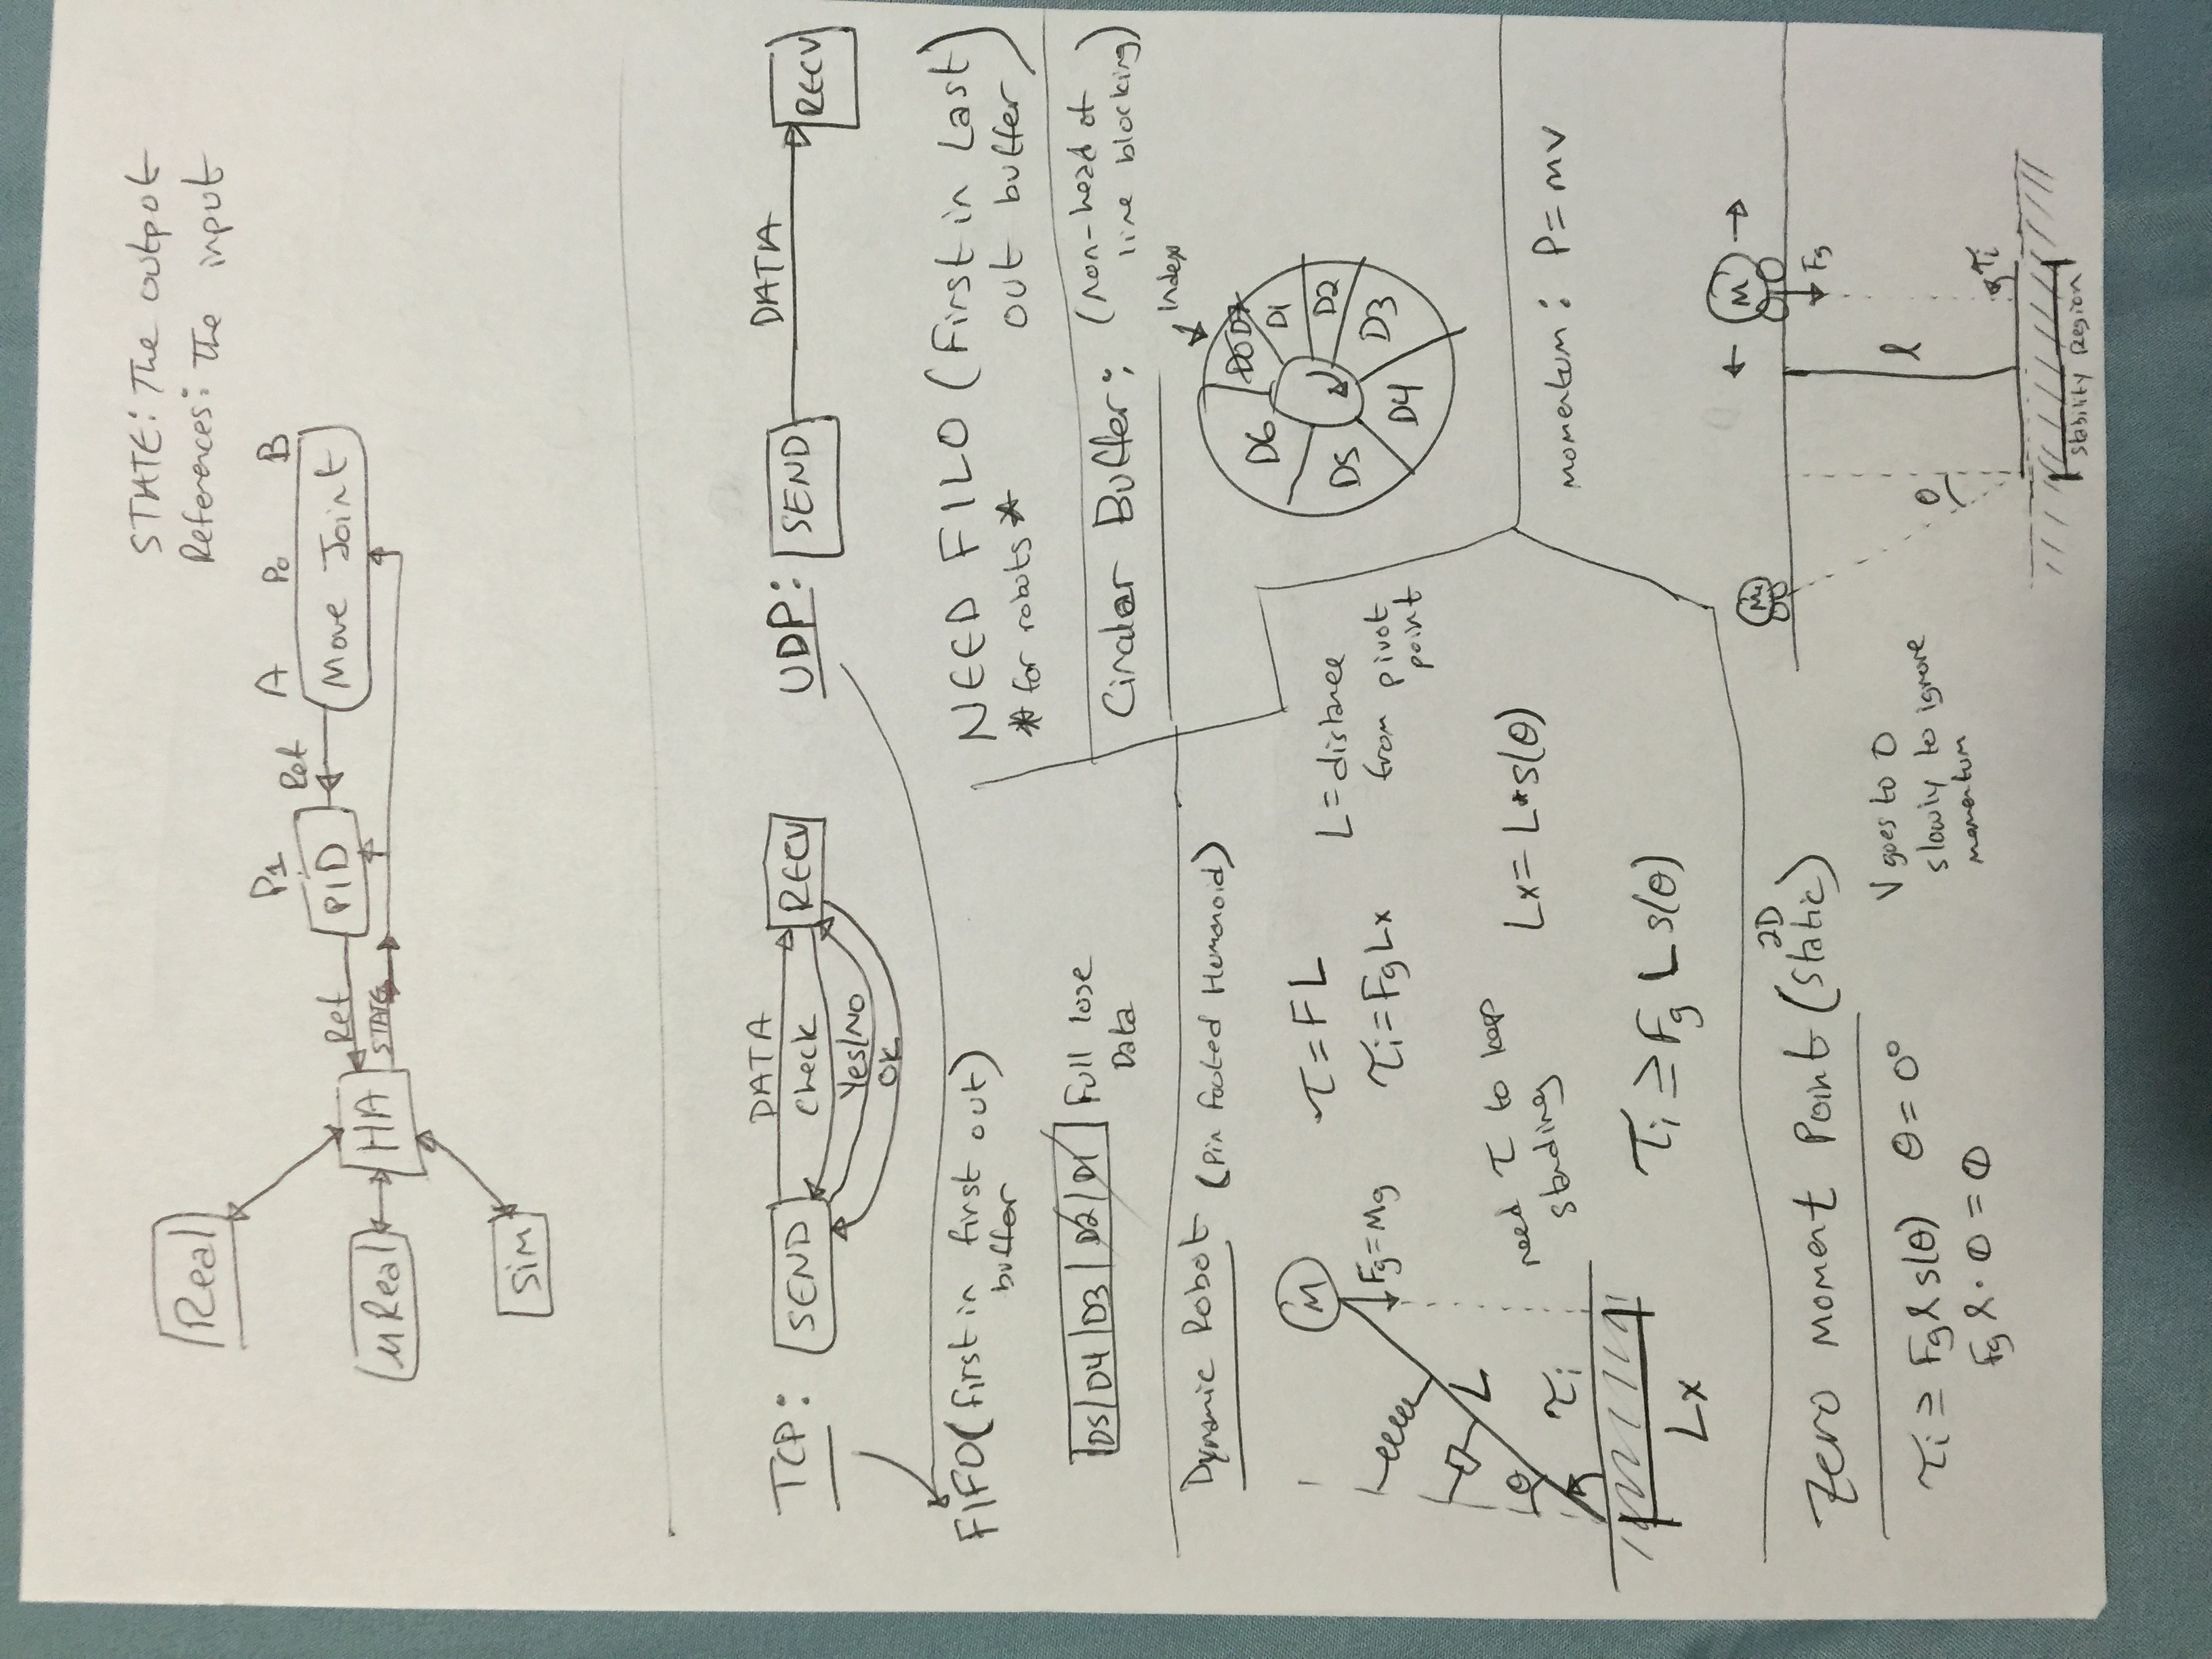 STATE: The output
References: The input
Real
P1
A P0 B
Ref
PID
Move Joint
Ref
HA
STATE
μReal
Sim
TCP:
SEND
DATA
Check
Yes/No
OK
RECV
UDP:
SEND
DATA
RECV
FIFO (first in first out)
buffer
D5 D4 D3 D2 D1
Full lose
Data
NEED FILO (First in Last
* for robots *
out buffer)
Circular Buffer: (non-head of
line blocking)
Index
D0 D7
D1
D2
D3
D4
D5
D6
Dynamic Robot (Pin footed Humonoid)
M
Fg=Mg
L
θ
τi
Lx
τ=FL
τi=FgLx
L=distance
from pivot
point
need τ to keep
standing
Lx=L*s(θ)
τi≥Fg L s(θ)
momentum: P=mv
Zero Moment Point (2D Static)
τi≥Fgls(θ) θ=0°
Fgl·0=0
V goes to 0
slowly to ignore
momentum
M
M
Fg
l
θ
τi
Stability Region